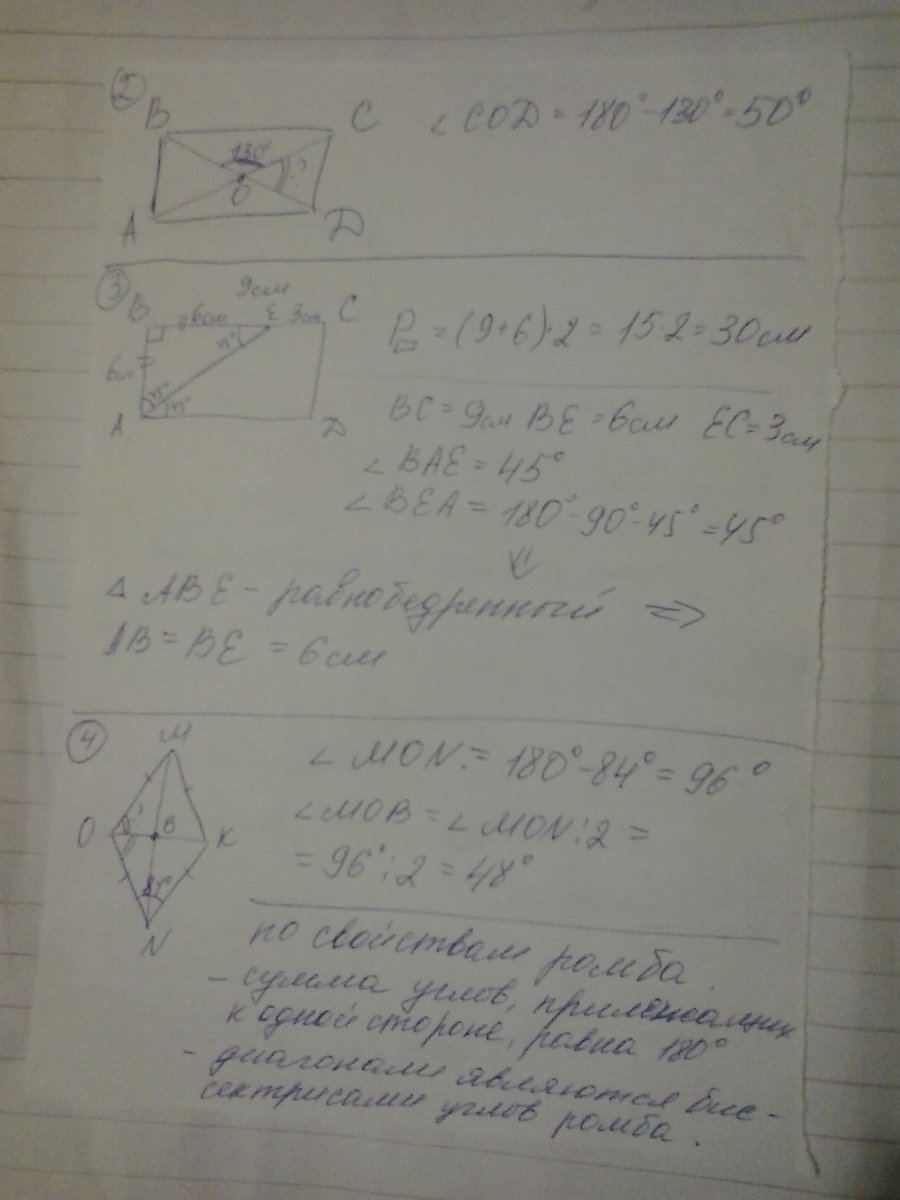 ②
B C ∠COD = 180° - 130° = 50°
130° ?
O
A D
③
9см
B 6см E 3см C
P▭ = (9+6)·2 = 15·2 = 30см
45°
6см 45°
45°
A D
BC = 9см BE = 6см EC = 3см
∠BAE = 45°
∠BEA = 180° - 90° - 45° = 45°
⇓
△ ABE - равнобедренный ⇒
AB = BE = 6см
④
M
∠MON = 180° - 84° = 96°
O ? B K
∠MOB = ∠MON : 2 =
= 96° : 2 = 48°
84°
N
по свойствам ромба.
- сумма углов, прилежащих
к одной стороне, равна 180°
- диагонали являются бис-
сектрисами углов ромба.